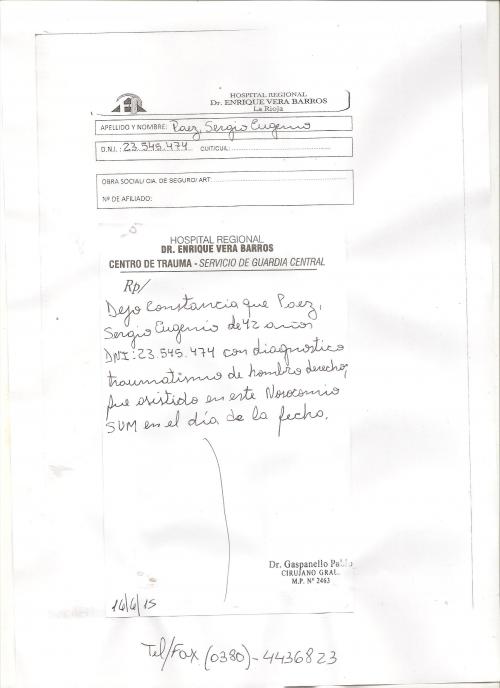 HOSPITAL REGIONAL
Dr. ENRIQUE VERA BARROS
La Rioja
APELLIDO Y NOMBRE: Paez, Sergio Eugenio
D.N.I. : 23.545.474 CUIT/CUIL:
OBRA SOCIAL/ CIA. DE SEGURO/ ART:
Nº DE AFILIADO:
HOSPITAL REGIONAL
DR. ENRIQUE VERA BARROS
CENTRO DE TRAUMA - SERVICIO DE GUARDIA CENTRAL
Rp/
Dejo constancia que Paez,
Sergio Eugenio de 42 años
DNI: 23.545.474 con diagnostico
traumatismo de hombro derecho,
fue asistido en este Nosocomio
SUM en el día de la fecha.
Dr. Gaspanello Pablo
CIRUJANO GRAL.
M.P. Nº 2463
16/6/15
Tel/Fax (0380)-4436823